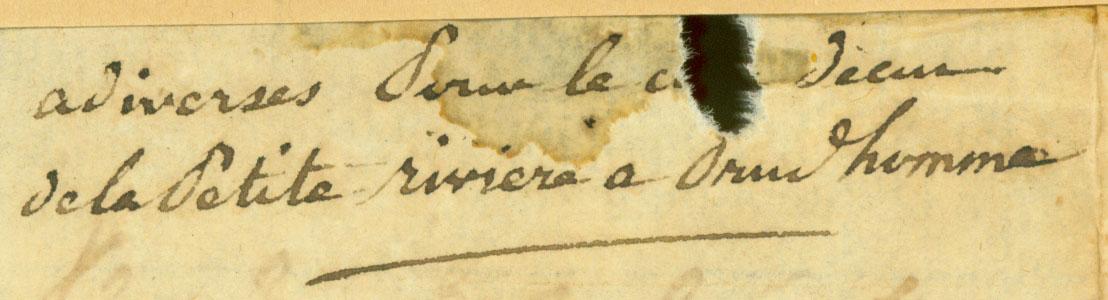 adiverses Pour le c
dela Petite riviere a Prud'homme